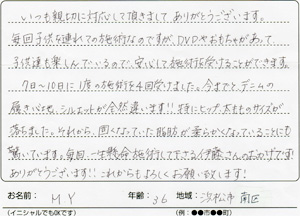 いつも親切に対応して頂きまして ありがとうございます。
毎回子供を連れての施術なのですが、DVDやおもちゃがあって、
子供達も楽しんでいるので、安心して施術受けることができます。
7日〜10日に1度の施術を4回受けました。今までとデニムの
履き心地、シルエットが全然違います!! 特にヒップ、太もものサイズが
落ちました。それから、固くなっていた脂肪が柔らかくなっていることにも
驚いています。毎回一生懸命施術して下さる伊藤さんのおかげです!
ありがとうございます!! これからもよろしくお願い致します!
お名前: M Y 年齢: 36 地域: 浜松市 南区
(イニシャルでもOKです) (例:●●市●●町)